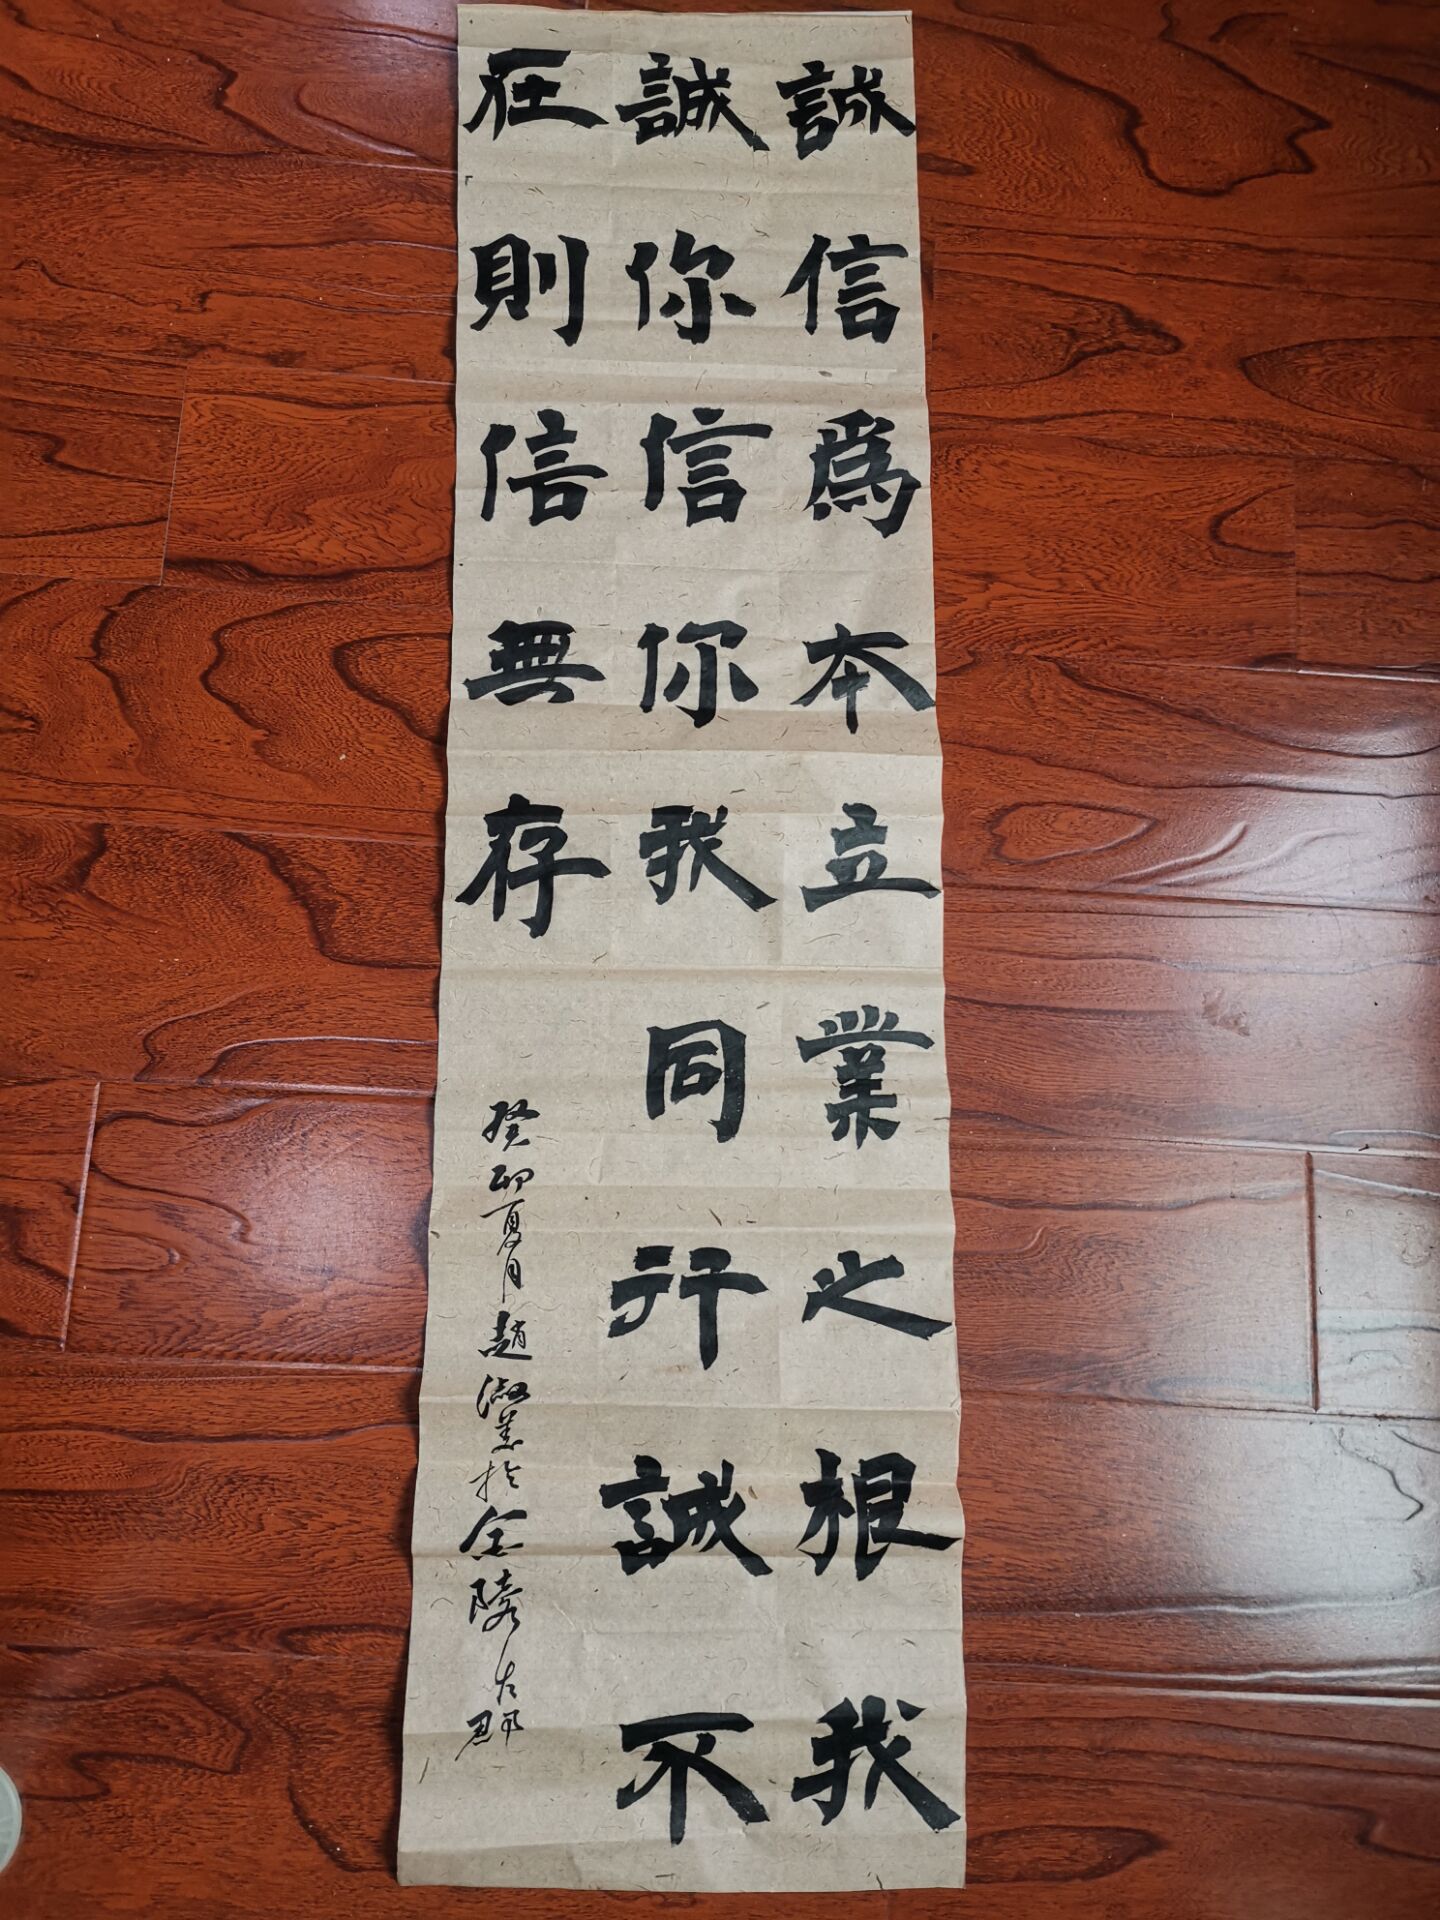 誠信爲本立業之根我
誠你信你我同行誠不
在則信無存
癸卯夏月趙淑慧於金陵古郡